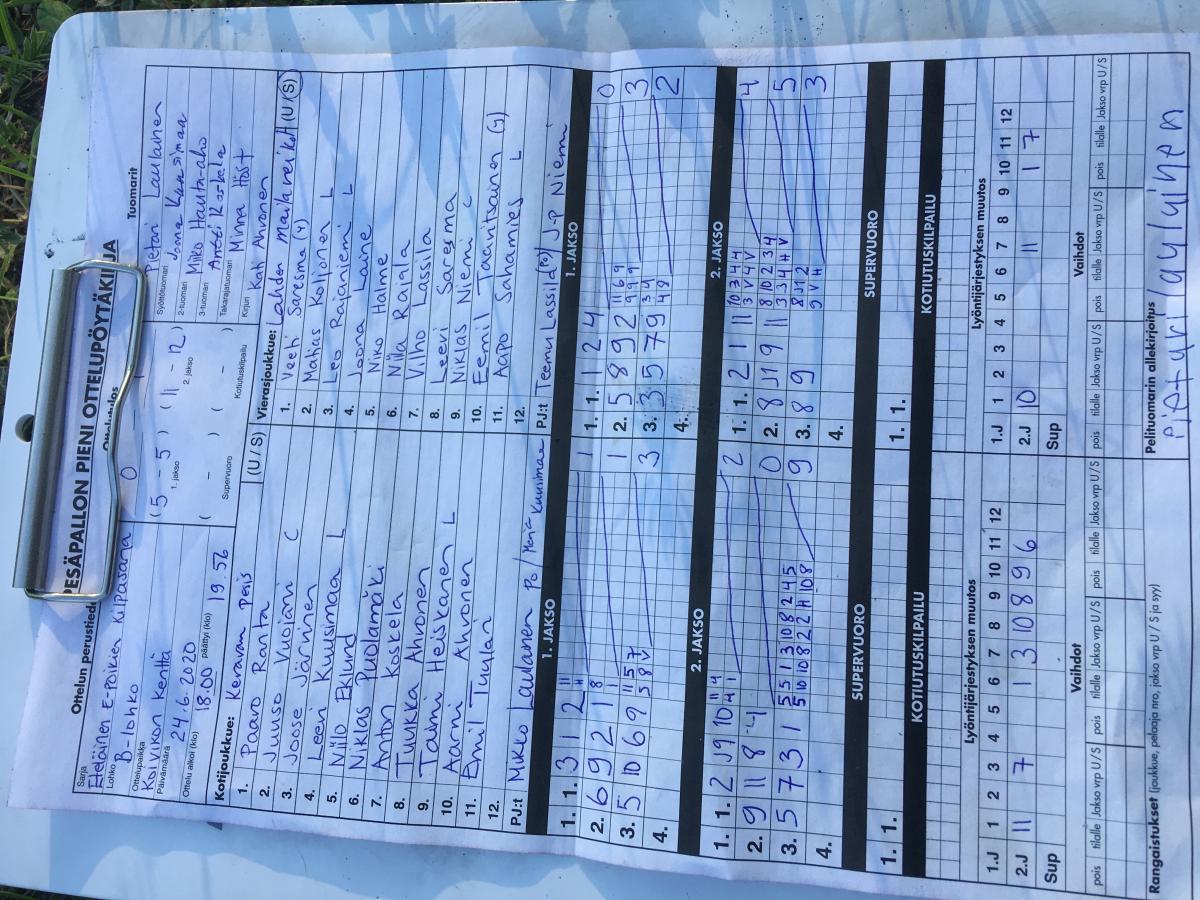 PESÄPALLON PIENI OTTELUPÖYTÄKIRJA
Ottelun perustiedot
Sarja
Eteläinen E-poikien Kilpasarja
Lohko
B-lohko
Ottelupaikka
Koivikon Kenttä
Päivämäärä
24.6.2020
Ottelu alkoi (klo) 18.00 päättyi (klo) 19 56
Ottelutulos
0 - 1
(5 - 5) (11 - 12)
1. jakso 2. jakso
( - ) ( - )
Supervuoro Kotiutuskilpailu
Tuomarit
Pietari Laulainen
Syöttötuomari
Joona Kuusimaa
2-tuomari
Miiko Hauta-aho
3-tuomari
Antti Koskela
Takarajatuomari
Minna Höst
Kirjuri Kati Ahvonen
Kotijoukkue: Keravan Pesis (U / S)
1. Paavo Ranta
2. Juuso Vuojani
3. Joose Järvinen C
4. Leevi Kuusimaa
5. Niilo Eklund L
6. Niklas Puolamäki
7. Anton Koskela
8. Tuukka Ahvonen
9. Taimi Heiskanen
10. Aarni Ahvonen L
11. Emil Tuulari
12.
PJ:t Mikko Laulainen PO/ Meria Kuusimaa
Vierasjoukkue: Lahden Mailaveikot (U / S)
1. Veeti Saresma (4)
2. Matias Koljonen
3. Leo Rajaniemi L
4. Joona Laine L
5. Niko Halme
6. Niila Rajala
7. Vilho Lassila
8. Leevi Saresma
9. Niklas Niemi C
10. Eemil Taavitsainen (4)
11. Aapo Sahamies L
12.
PJ:t Teemu Lassila (PO) J-P Niemi
1. JAKSO
1. 1. 3 1 2 1
2. 6 9 2 1 1
3. 5 10 6 9 3
4.
1. JAKSO
1. 1. 1 2 4 0
2. 5 8 9 2 3
3. 3 5 7 9 2
4.
2. JAKSO
1. 1. 2 9 10 2
2. 9 11 8 4 0
3. 5 7 3 1 9
4.
2. JAKSO
1. 1. 2 1 11 4
2. 8 11 9 11 5
3. 8 9 3
4.
SUPERVUORO
1. 1.
SUPERVUORO
1. 1.
KOTIUTUSKILPAILU
KOTIUTUSKILPAILU
Lyöntijärjestyksen muutos
1.J 1 2 3 4 5 6 7 8 9 10 11 12
2.J 11 7 1 3 10 8 9 6
Sup
Lyöntijärjestyksen muutos
1.J 1 2 3 4 5 6 7 8 9 10 11 12
2.J 10 11 1 7
Sup
Vaihdot
pois tilalle Jakso vrp U / S pois tilalle Jakso vrp U / S pois tilalle Jakso vrp U / S
Vaihdot
pois tilalle Jakso vrp U / S pois tilalle Jakso vrp U / S pois tilalle Jakso vrp U / S
Rangaistukset (joukkue, pelaaja nro, jakso vrp U / S ja syy)
Pelituomarin allekirjoitus